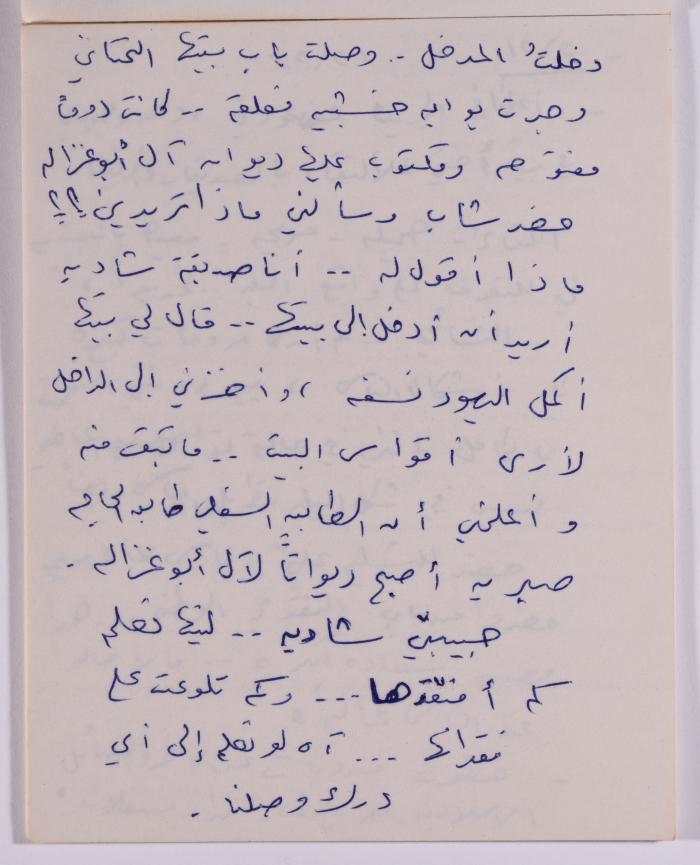 دخلتُ المدخل .. وصلت باب بيتها التحتاني
وجدت بوابه خشبيه مغلقة .. كانت دوماً
مفتوحه ومكتوب عليها ديوان آل أبوغزاله
حضر شاب وسألني ماذا تريدين؟؟
ماذا أقول له .. أنا صديقة شاديه
أريد أن أدخل إلى بيتها .. قال لي بيتها
أكمل اليهود نسفه ، وأخذني إلى الداخل
لأرى أقواس البيت .. ما تبقى منه
وأعلمني أن الطابق السفلي طابق الحاجه
صبريه أصبح ديواناً لآل أبوغزاله .
حبيبتي شاديه .. ليتها تعلم
كم أفتقدها ... وكم تلوعت على
فقدانها ... آه لو تعلم إلى أي
درك وصلنا .